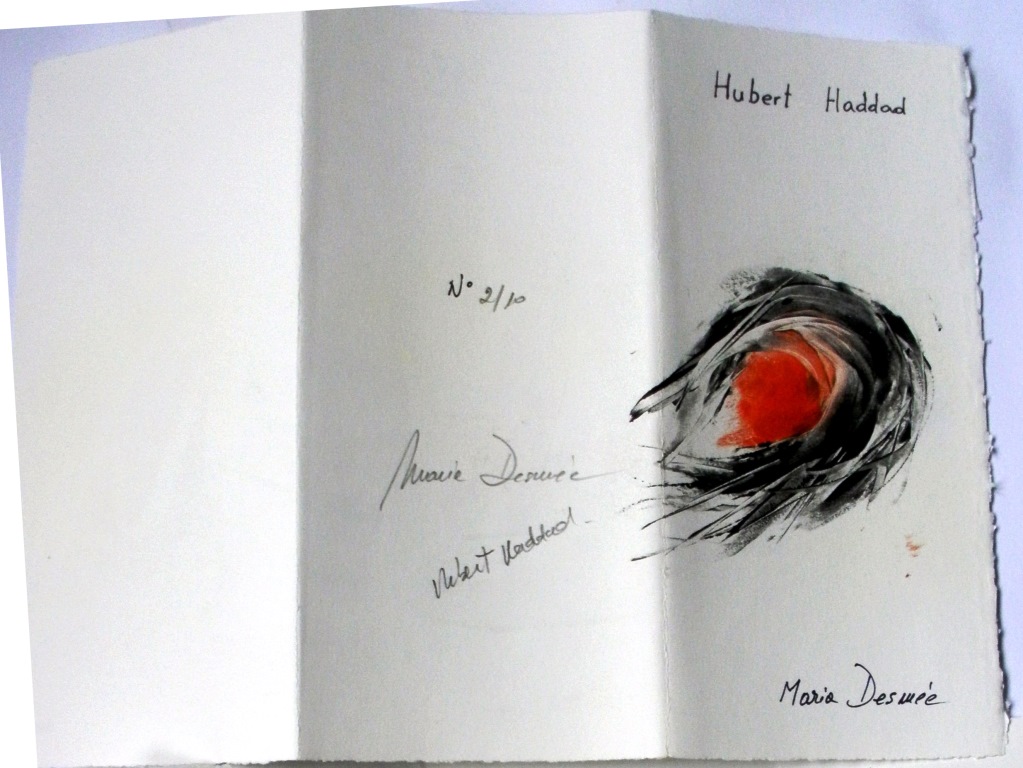 Hubert Haddad
N° 2/10
Maria Desmée
Hubert Haddad
Maria Desmée